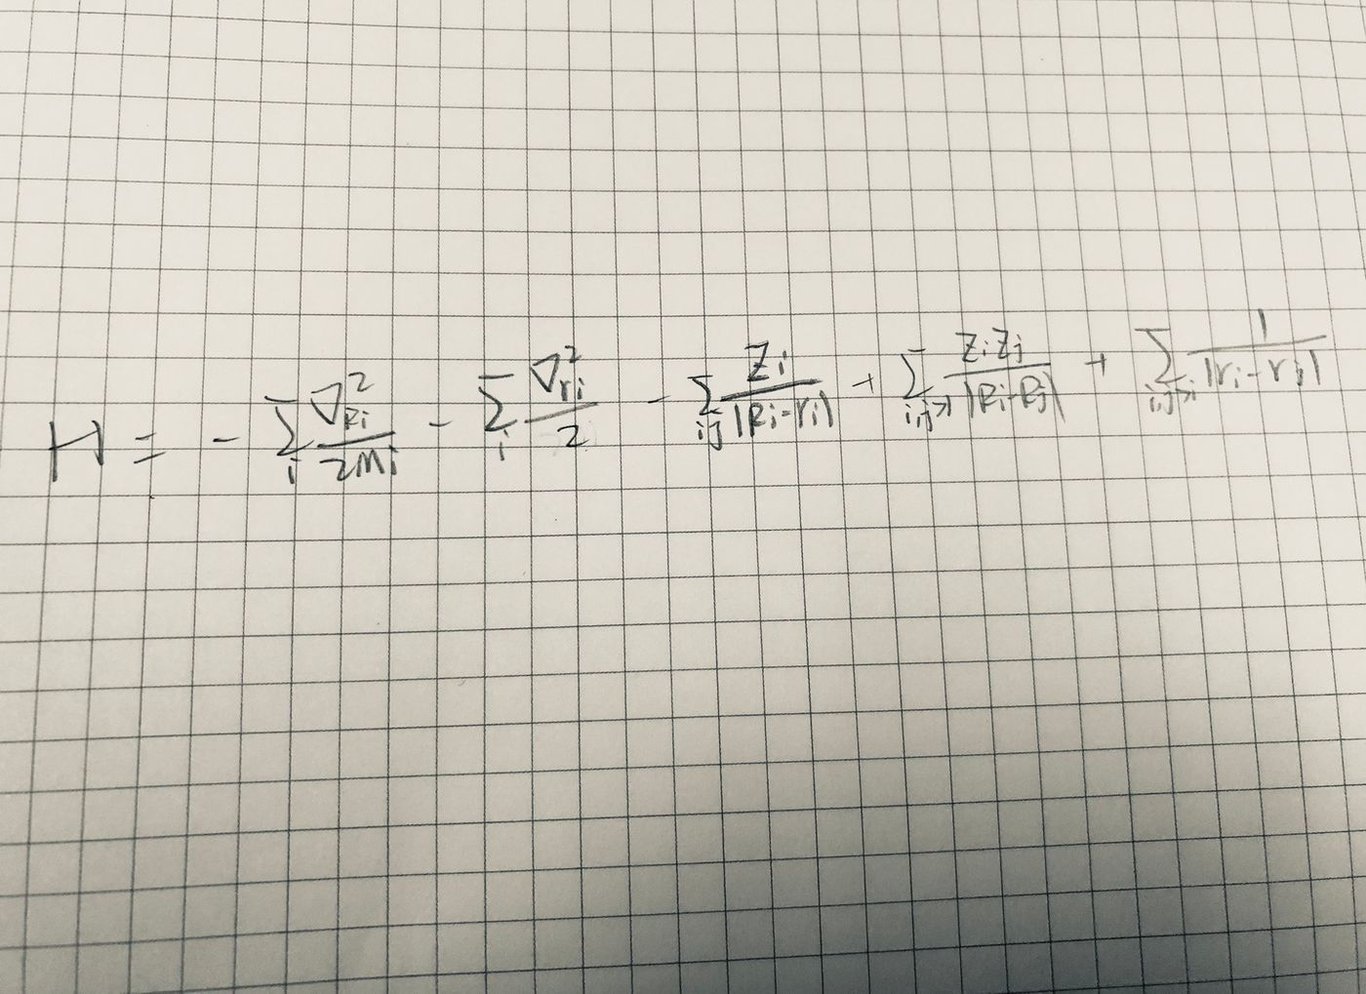 H = - \sum_i \frac{\nabla^2_{R_i}}{2M_i} - \sum_i \frac{\nabla^2_{r_i}}{2} - \sum_{i,j} \frac{Z_i}{|R_i - r_i|} + \sum_{i,j>i} \frac{Z_i Z_j}{|R_i - R_j|} + \sum_{i,j>i} \frac{1}{|r_i - r_j|}